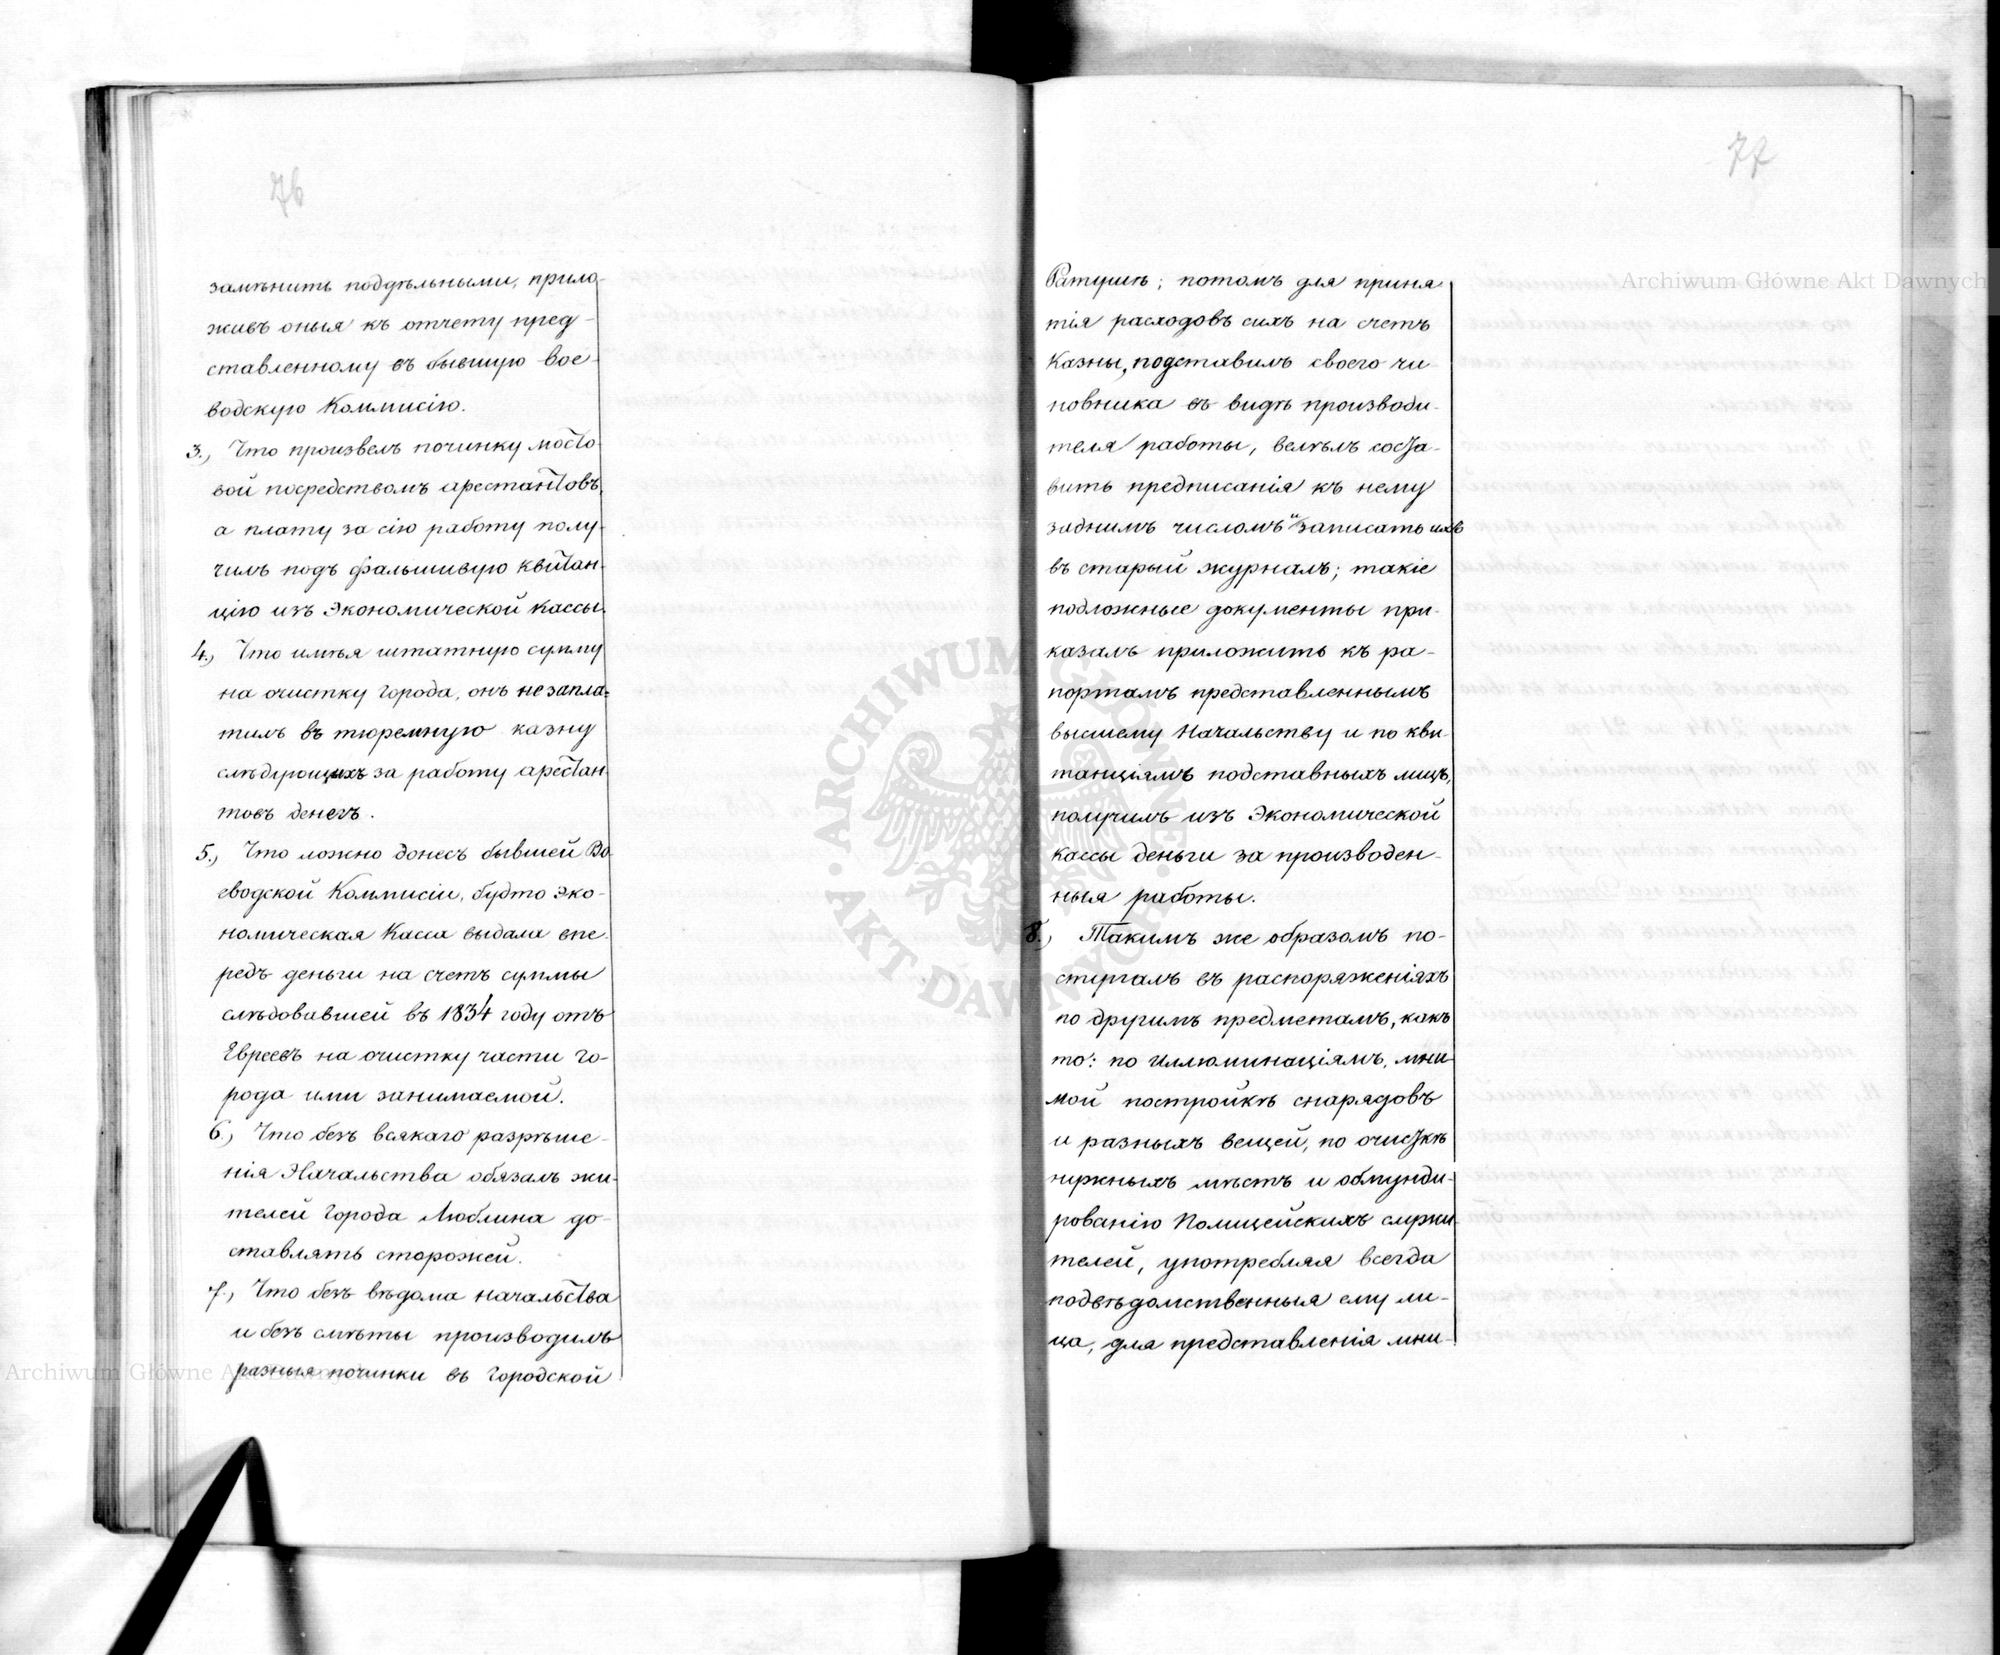 76
замѣнить поддѣльными, прило-
живъ оныя къ отчету пред-
ставленному въ бывшую вое-
водскую Коммисію.
3., Что произвелъ починку мосто-
вой посредствомъ арестантовъ,
а плату за сію работу полу-
чилъ подъ фальшивую квитан-
цію изъ Экономической кассы.
4., Что имѣя штатную сумму
на очистку города, онъ не запла-
тилъ въ тюремную казну
слѣдующихъ за работу арестан-
товъ денегъ.
5., Что ложно донесъ бывшей Во-
еводской Коммисіи, будто эко-
номическая Касса выдала впе-
редъ деньги на счетъ суммы
слѣдовавшей въ 1834 году отъ
Евреевъ на очистку части го-
рода ими занимаемой.
6., Что безъ всякаго разрѣше-
нія Начальства обязалъ жи-
телей города Люблина до-
ставлять сторожей.
7., Что безъ вѣдома начальства
и безъ смѣты производилъ
разныя починки въ городской
77
Ратушѣ; потомъ для приня
тія расходовъ сихъ на счетъ
казны, подставилъ своего чи-
новника въ видѣ производи-
теля работы, велѣлъ соста-
вить предписанія къ нему
заднимъ числомъ и записать ихъ
въ старый журналъ; такіе
подложные документы при-
казалъ приложить къ ра-
портамъ представленнымъ
высшему Начальству и по кви-
танціямъ подставныхъ лицъ,
получилъ изъ Экономической
кассы деньги за производен-
ныя работы.
8., Такимъ же образомъ по-
ступалъ въ распоряженіяхъ
по другимъ предметамъ, какъ
то: по иллюминаціямъ, мни-
мой постройкѣ снарядовъ
и разныхъ вещей, по очисткѣ
нужныхъ мѣстъ и обмунди-
рованію Полицейскихъ служи-
телей, употребляя всегда
подвѣдомственныя ему ли-
ца, для представленія мни-
Archiwum Główne Akt Dawnych
Archiwum Główne Akt Dawnych
ARCHIWUM GŁÓWNE · AKT DAWNYCH ·